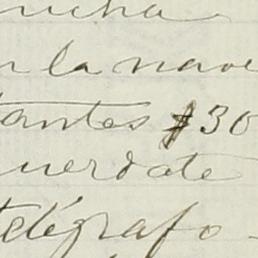 ucha
n la nave
tantes $30
uerdate
telégrafo -